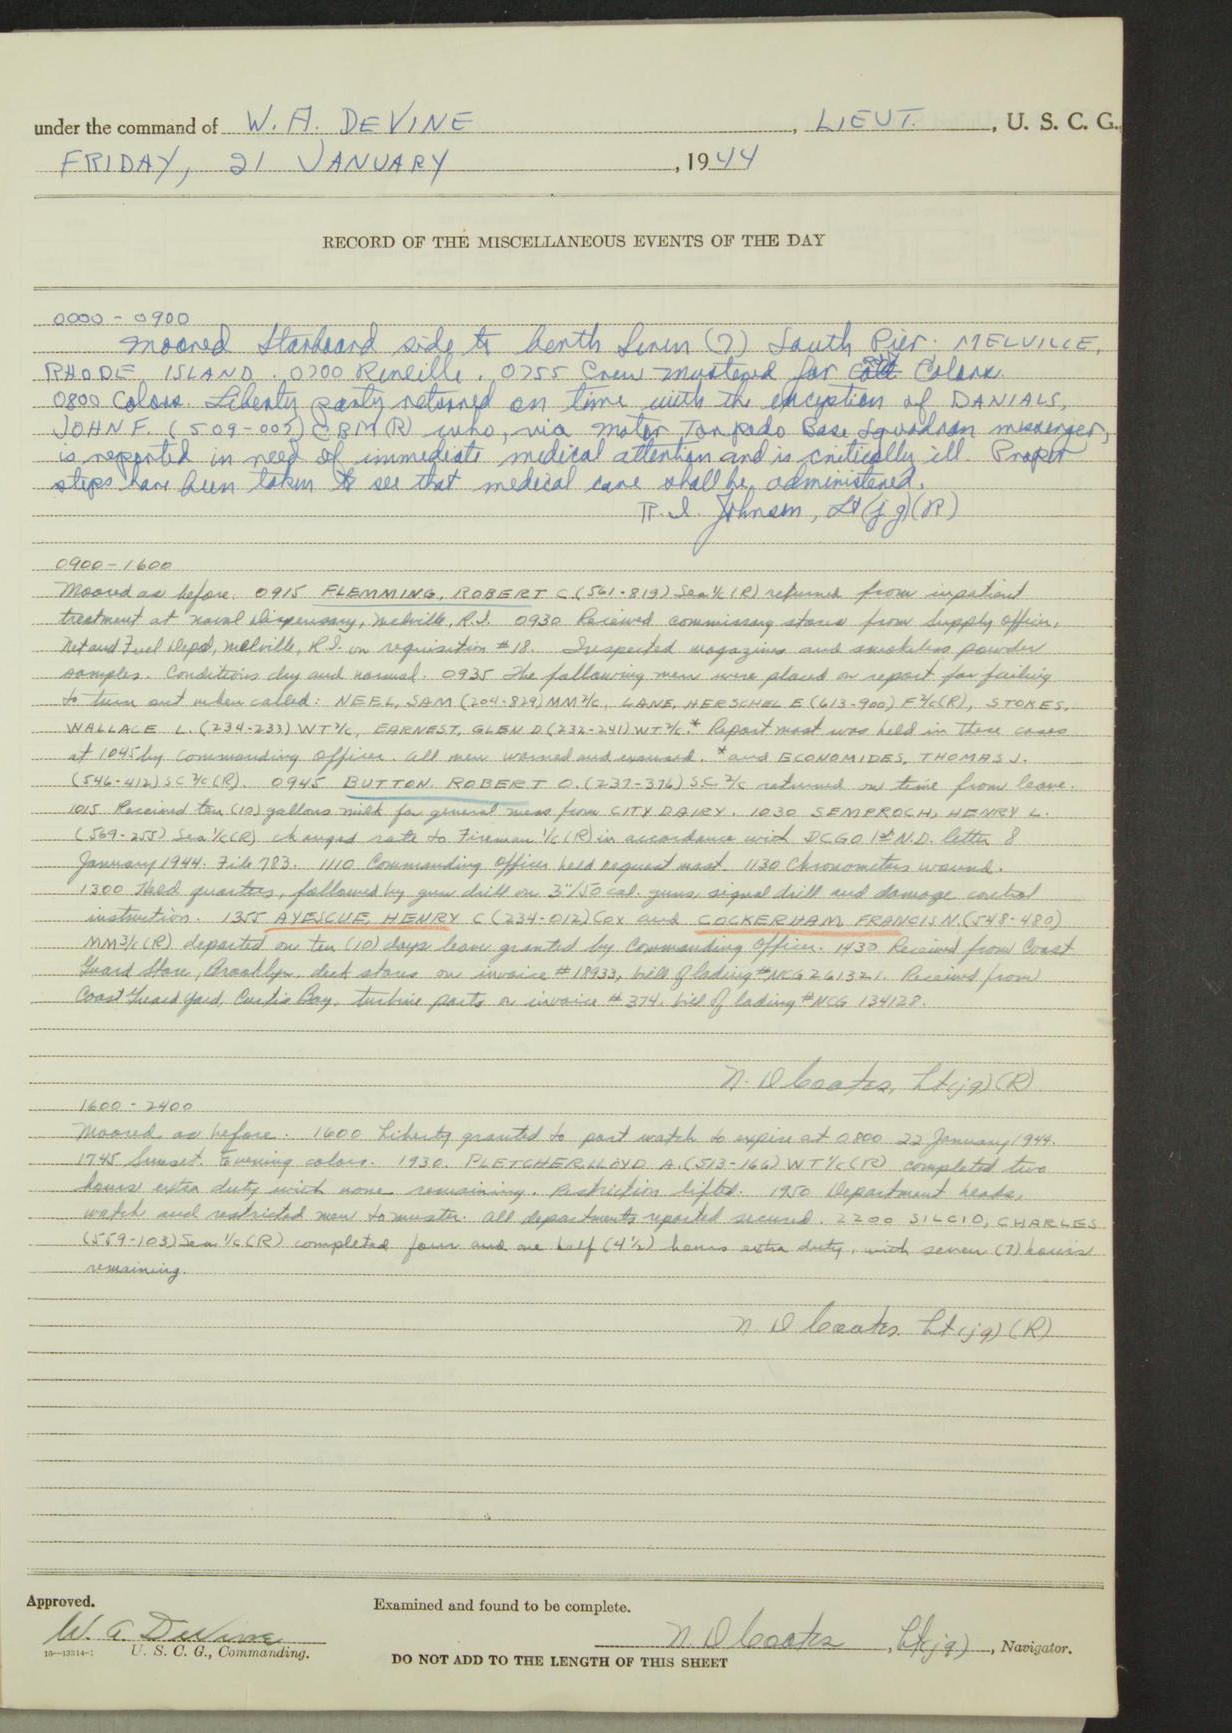 under the command of W. A. DEVINE, LIEUT., U. S. C. G.,
FRIDAY, 21 JANUARY, 1944
RECORD OF THE MISCELLANEOUS EVENTS OF THE DAY
0000 - 0900
Moored Starboard side to berth Seven (7) South Pier. MELVILLE,
RHODE ISLAND. 0700 Reveille. 0755 Crew mustered for Colors.
0800 Colors. Liberty party returned on time with the exception of DANIALS,
JOHN F. (509-005) CBM (R) who, via Motor Torpedo Base Squadron messenger,
is reported in need of immediate medical attention and is critically ill. Proper
steps have been taken to see that medical care shall be administered.
R. I. Johnson, Lt (jg)(R)
0900-1600
Moored as before. 0915 FLEMMING, ROBERT C (561-819) Sea 1/c (R) returned from inpatient
treatment at naval dispensary, Melville, R.I. 0930 Received commissary stores from Supply officer,
Net and Fuel Depot, Melville, R.I. on requisition #18. Inspected magazines and smokeless powder
samples. Conditions dry and normal. 0935 The following men were placed on report for failing
to turn out when called: NEEL, SAM (204-829) MM2/c, LANE, HERSCHEL E (613-900) F2/c(R), STOKES,
WALLACE L. (234-233) WT2/c, EARNEST, GLEN D (232-241) WT2/c.* Report mast was held in these cases
at 1045 by Commanding Officer. All men warned and excused. *and ECONOMIDES, THOMAS J.
(546-412) SC3/c(R). 0945 BUTTON, ROBERT O. (237-376) SC2/c returned on time from leave.
1015 Received ten (10) gallons milk for general mess from CITY DAIRY. 1030 SEMPROCH, HENRY L.
(569-255) Sea 1/c(R) changed rate to Fireman 1/c (R) in accordance with DCGO 1st N.D. letter 8
January 1944. File 783. 1110 Commanding Officer held request mast. 1130 Chronometers wound.
1300 Held quarters, followed by gun drill on 3"/50 cal. guns, signal drill and damage control
instruction. 1355 AYESCUE, HENRY C (234-012) Cox and COCKERHAM, FRANCIS N. (548-480)
MM3/c (R) departed on ten (10) days leave granted by Commanding Officer. 1430 Received from Coast
Guard Store, Brooklyn, deck stores on invoice #18933, bill of lading #NCG261321. Received from
Coast Guard Yard, Curtis Bay, turbine parts on invoice #374, bill of lading #NCG 134128.
N. D Coates, Lt(jg)(R)
1600 - 2400
Moored as before. 1600 Liberty granted to port watch to expire at 0800 22 January 1944.
1745 Sunset. Evening colors. 1930. PLETCHER, LLOYD A. (513-166) WT1/c (R) completed two
hours extra duty with none remaining. Restriction lifted. 1950 Department heads,
watch and restricted men to muster. All departments reported secured. 2200 SILCIO, CHARLES
(559-103) Sea 1/c (R) completed four and one half (4½) hours extra duty, with seven (7) hours
remaining.
N. D Coates. Lt(jg)(R)
Approved.
Examined and found to be complete.
W. A. DeVine
N. D Coates, Lt(jg), Navigator.
U. S. C. G., Commanding.
DO NOT ADD TO THE LENGTH OF THIS SHEET